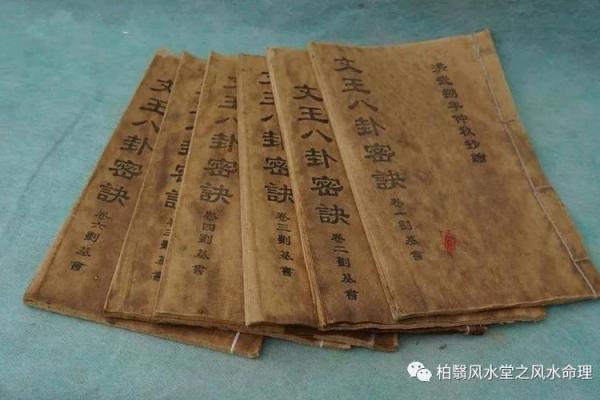 洪武捌年仲秋抄繪
文王八卦密訣
卷一劉基書
文王八卦密訣
卷二劉基書
文王八卦密訣
卷三劉基書
文王八卦密訣
卷四劉基書
文王八卦密訣
文王八卦密訣
卷六劉基書
柏翳风水堂之风水命理